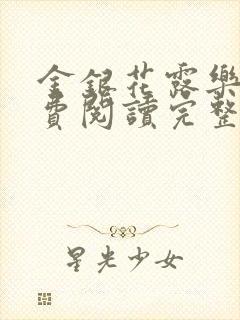 金銀花露樂
費閱讀完整
星光少女